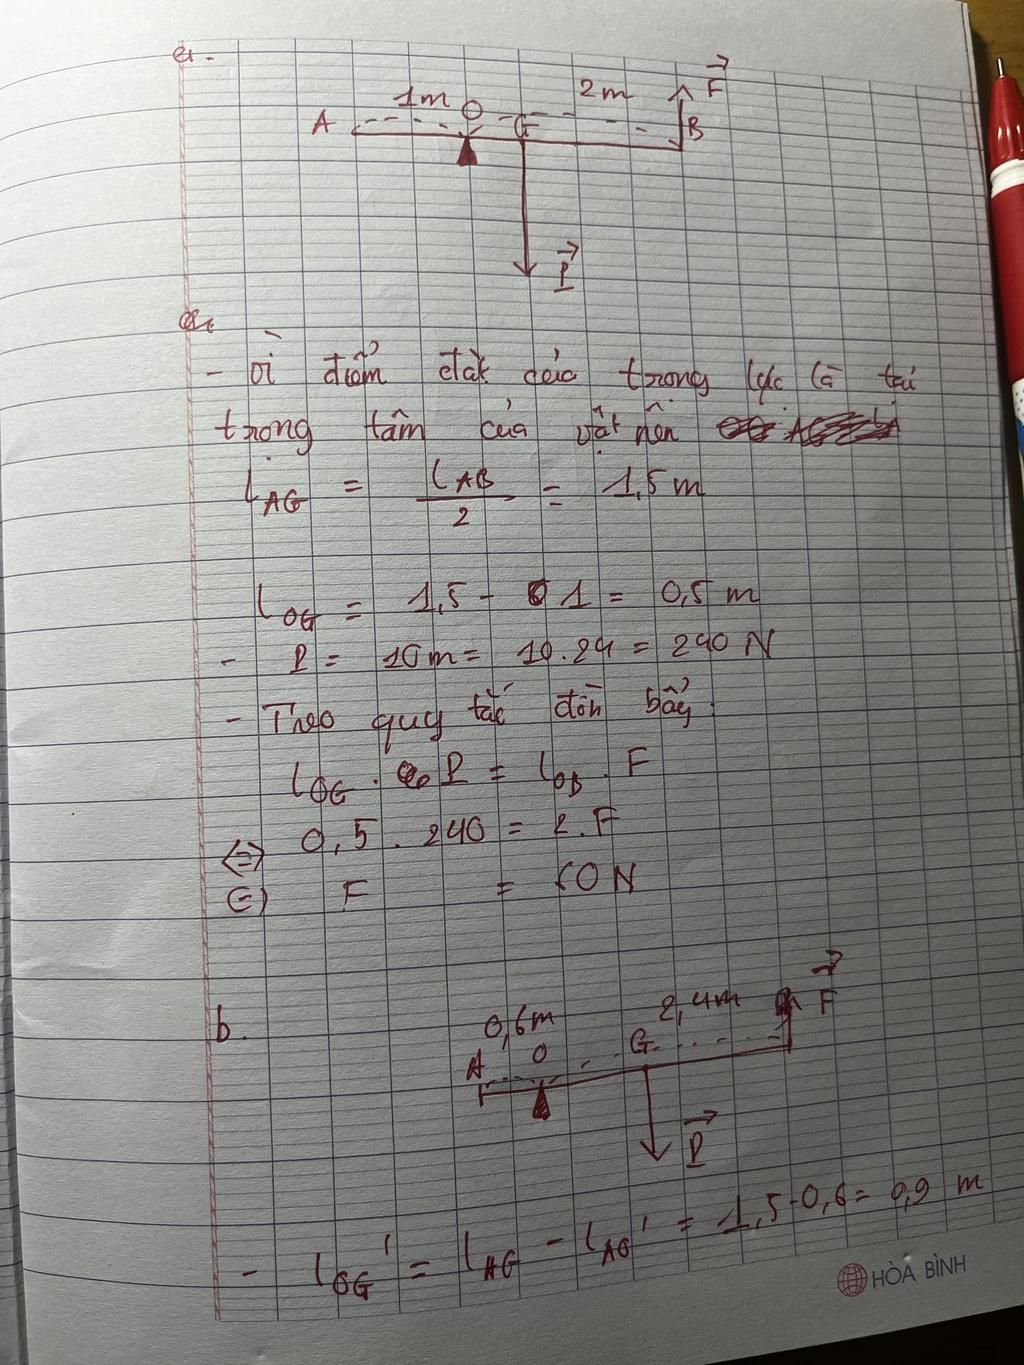 a.
1m O G 2m F
A B
P
a.
- Vì điểm đặt của trọng lực là tại
trọng tâm của vật nên
l_AG = l_AB / 2 = 1,5 m
l_OG = 1,5 - 1 = 0,5 m
- P = 10m = 10.24 = 240 N
- Theo quy tắc đòn bẩy:
l_OG . P = l_OB . F
⇔ 0,5 . 240 = 2.F
⇔ F = 60 N
b.
0,6m 2,4m F
A O G
P
- l_OG' = l_AG - l_AO' = 1,5-0,6 = 0,9 m
HÒA BÌNH